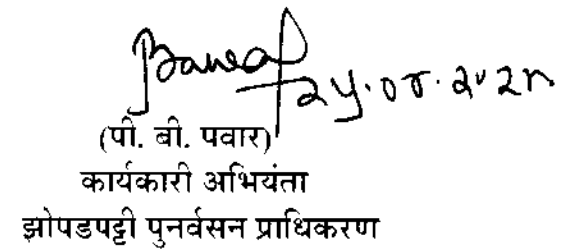 (पी. बी. पवार)
कार्यकारी अभियंता
झोपडपट्टी पुनर्वसन प्राधिकरण